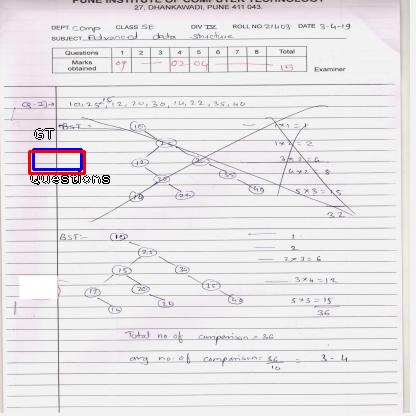 PUNE INSTITUTE OF COMPUTER TECHNOLOGY
27, DHANKAWADI, PUNE 411 043.
DEPT. Comp CLASS SE DIV IV ROLL NO. 21403 DATE 3-4-19
SUBJECT Advanced data structure
Questions 1 2 3 4 5 6 7 8 Total
Marks obtained 09 — — 02 04 15
Examiner
Q-1)→ 10, 25, 15, 12, 20, 30, 14, 22, 35, 40
BST:-
1×1 = 1
1×2 = 2
3×2 = 6
4×2 = 8
5×3 = 15
32
GT
Questions
BST:-
1
2
2×3 = 6
3×4 = 12
5×3 = 15
36
Total no. of comparison = 36
avg no. of comparison = 36/10 = 3-4